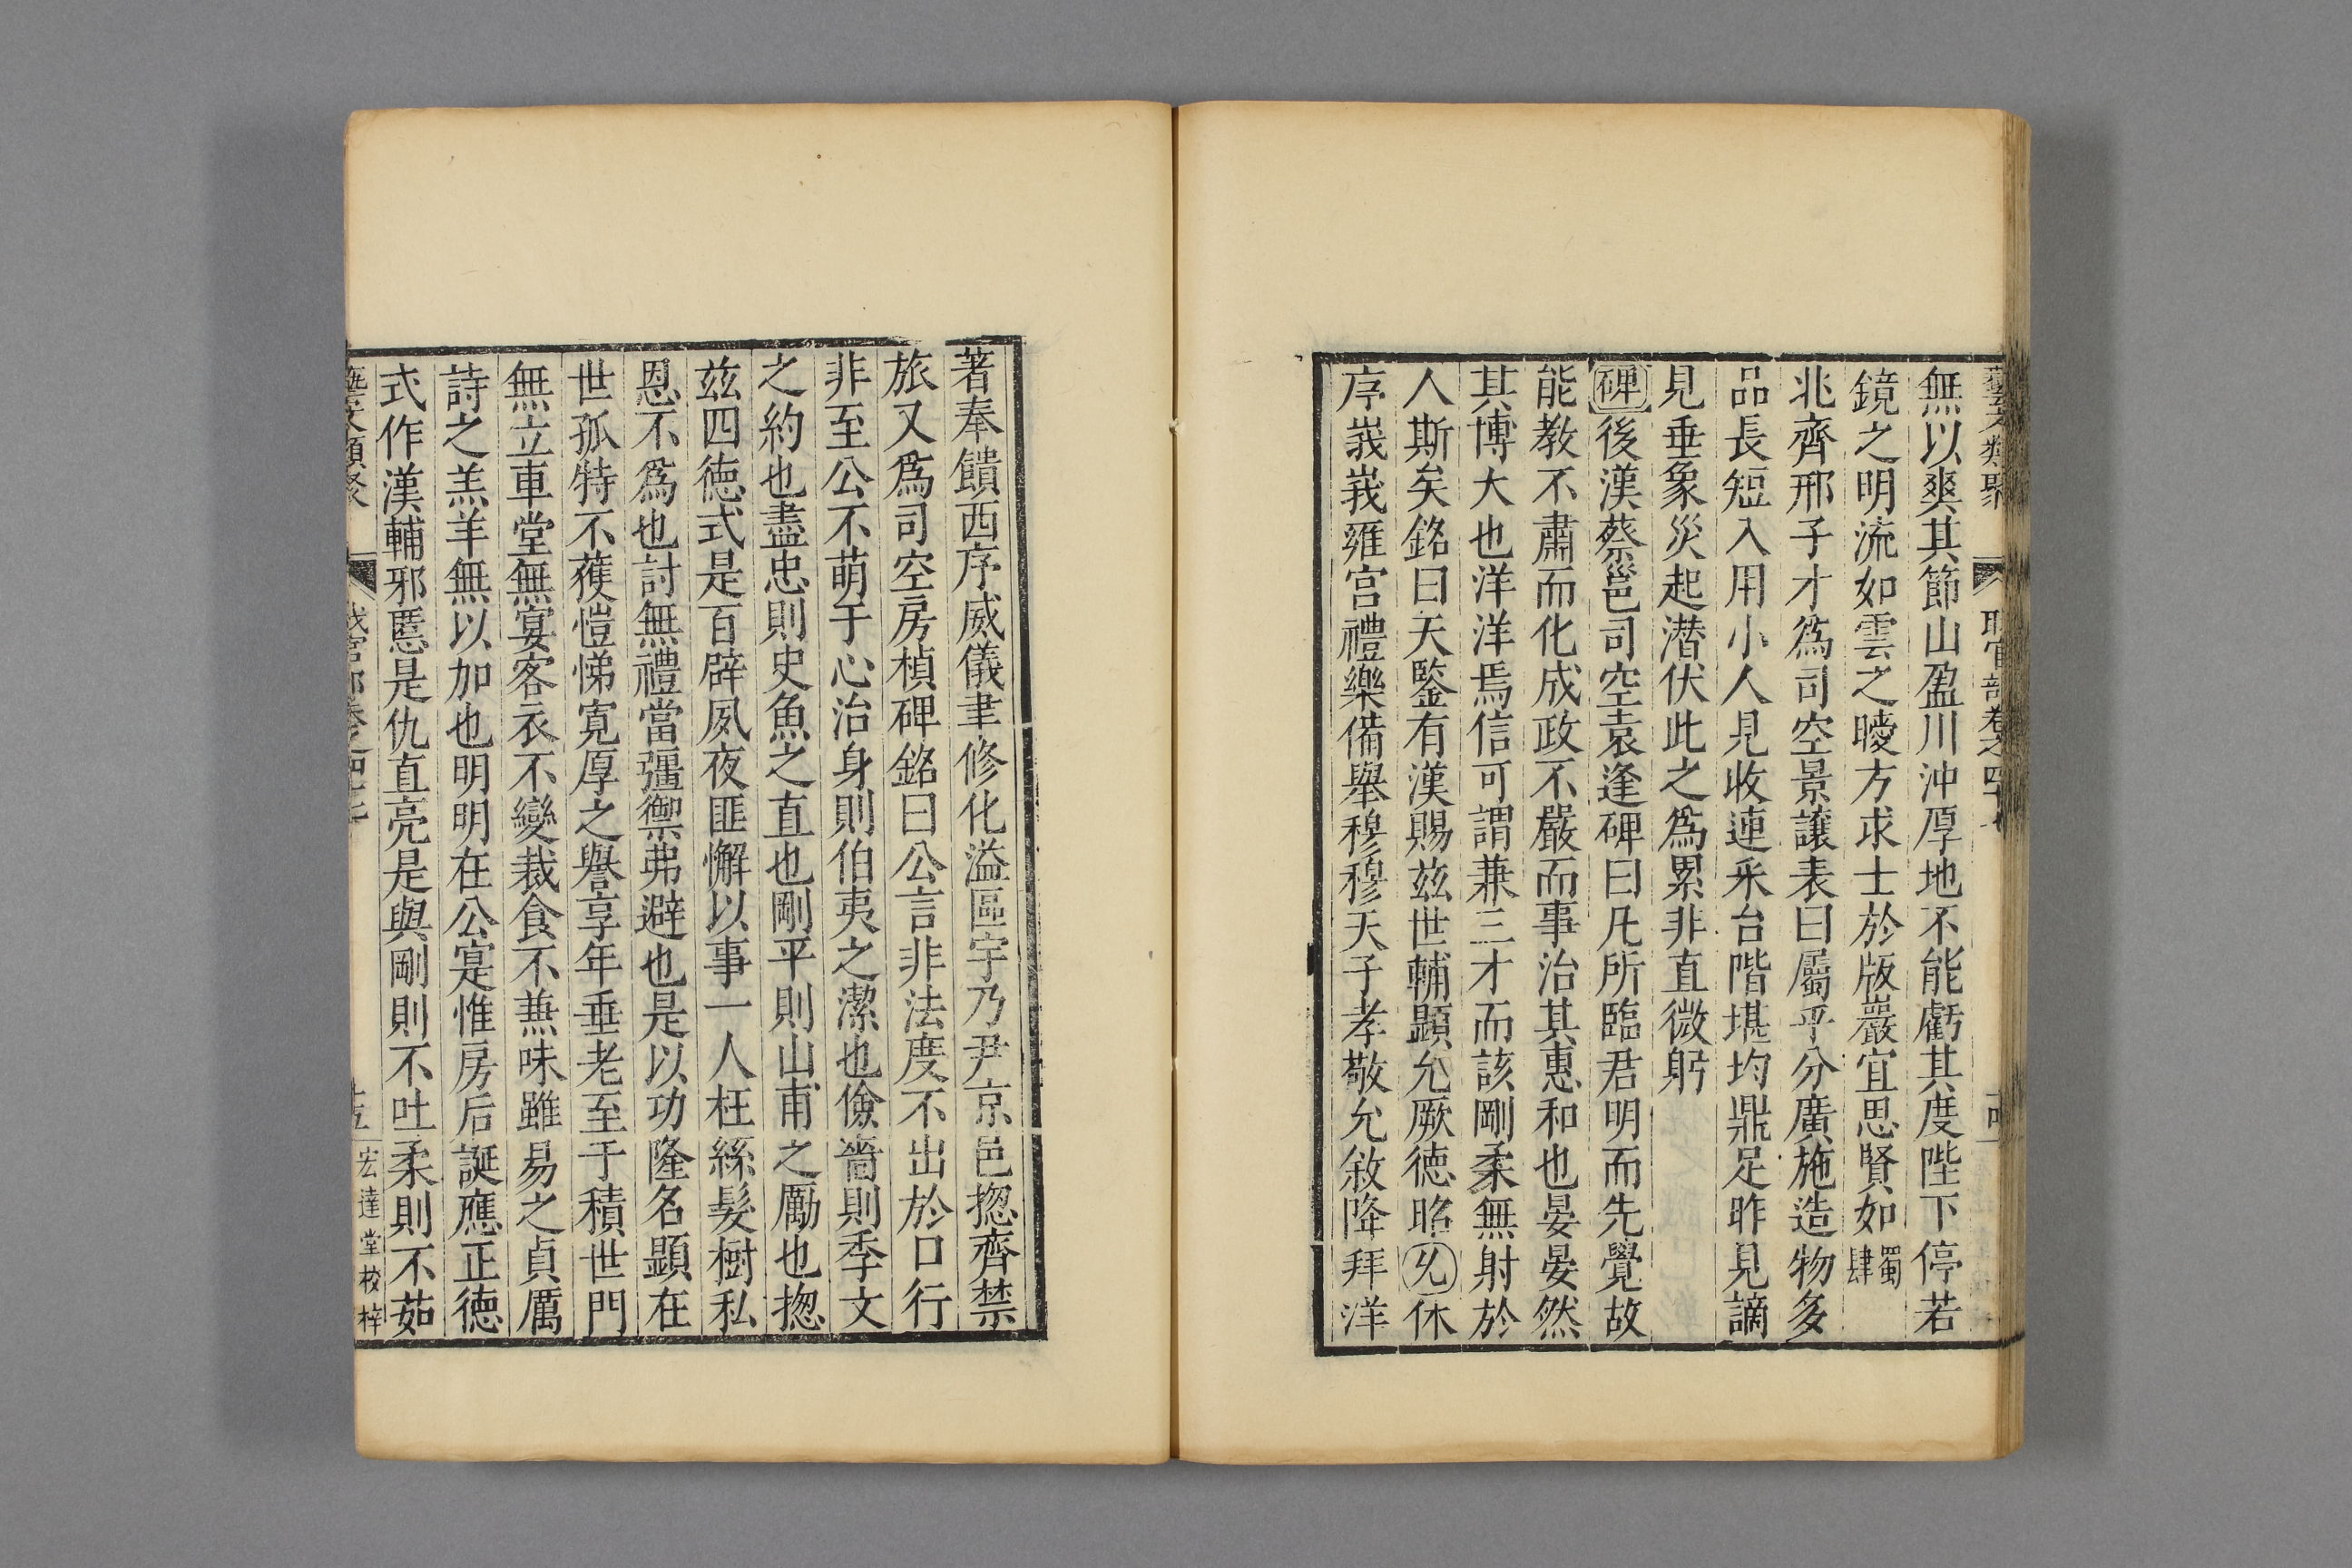 藝文類聚 職官部卷之四十七
無以爽其節山盈川沖厚地不能虧其度陛下停若
鏡之明流如雲之曖方求士於版巖宜思賢如蜀肆
兆齊邢子才為司空景讓表曰屬平分廣施造物多
品長短入用小人見收連釆台階堪均鼎足昨見謫
見垂象災起潛伏此之爲累非直微躬
碑後漢蔡邕司空袁逢碑曰凡所臨君明而先覺故
能教不肅而化成政不嚴而事治其惠和也晏晏然
其博大也洋洋焉信可謂兼三才而該剛柔無射於
人斯矣銘曰天鑒有漢賜兹世輔顯允厥德昭 休
序峩峩雍宮禮樂備舉穆穆天子孝敬允敘降拜洋
著奉饋西序威儀聿修化溢區宇乃尹京邑揔齊禁
旅又爲司空房楨碑銘曰公言非法度不出於口行
非至公不萌于心治身則伯夷之潔也儉嗇則季文
之約也盡忠則史魚之直也剛平則山甫之勵也揔
兹四德式是百辟夙夜匪懈以事一人枉絲髮樹私
恩不爲也討無禮當彊禦弗避也是以功隆名顯在
世孤特不獲愷悌寬厚之譽享年垂老至于積世門
無立車堂無宴客衣不變裁食不兼味雖易之貞厲
詩之羔羊無以加也明明在公寔惟房后誕應正德
式作漢輔邪慝是仇直亮是與剛則不吐柔則不茹
藝文類聚 職官部卷之四十七 十五 宏達堂校梓